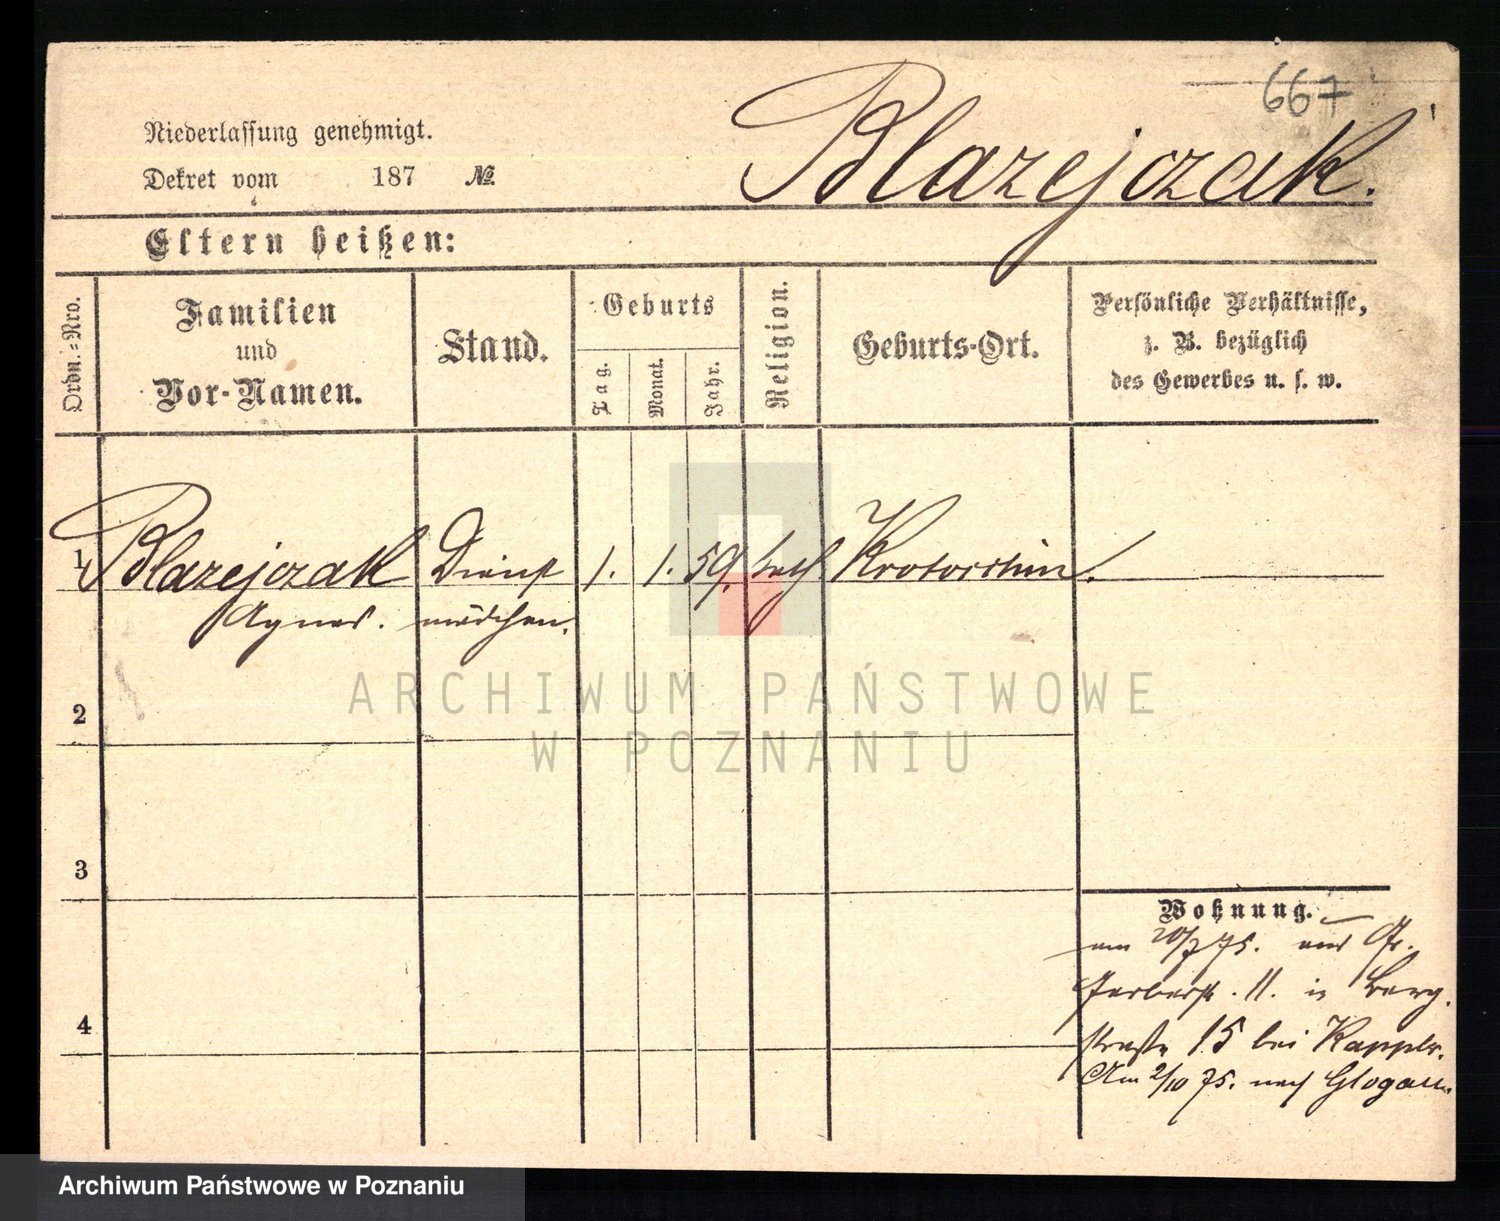 667
Niederlassung genehmigt.
Dekret vom 187 №
Blazejczak.
Eltern heißen:
Ordn.-Nro.
Familien
und
Vor-Namen.
Stand.
Geburts
Tag.
Monat.
Jahr.
Religion.
Geburts-Ort.
Persönliche Verhältnisse,
z. B. bezüglich
des Gewerbes u. s. w.
1 Blazejczak Dienst 1. 1. 59. kath Krotoschin.
Agnes. mädchen.
2
3
4
Wohnung.
am 20/7 75. aus Gr.
Gerberstr. 11. in Berg.
straße 15 bei Kappler.
Am 2/10 75. nach Glogau.
ARCHIWUM PAŃSTWOWE
W POZNANIU
Archiwum Państwowe w Poznaniu